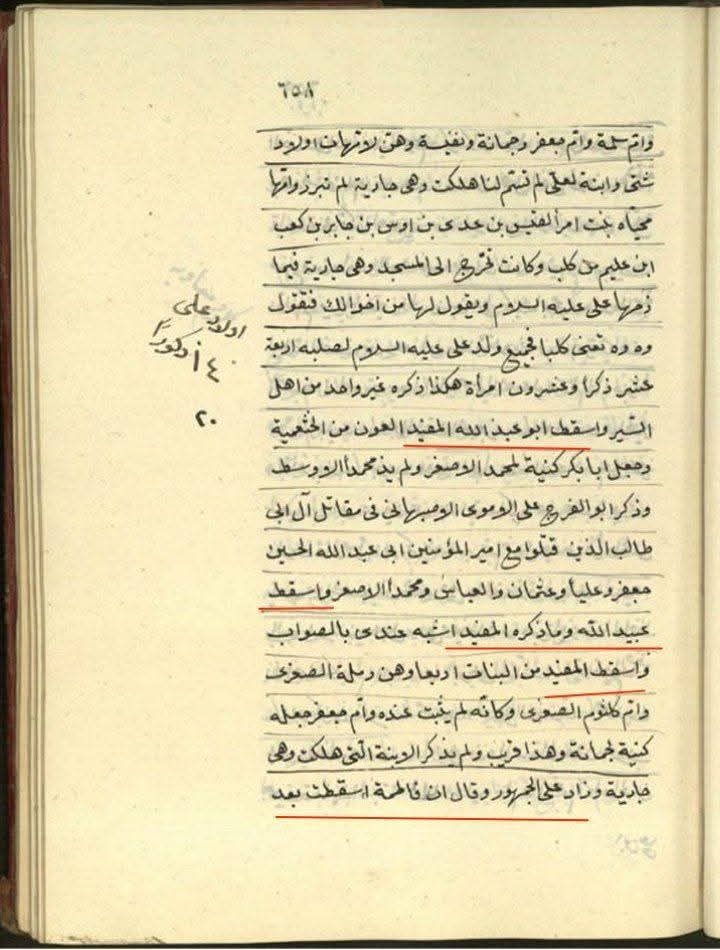 ٦٥٨
وام سلمة وام جعفر وجمانة ونفيسة وهن لامهات اولاد
شتى وابنة لعلى لم تسم لنا هلكت وهى جارية لم تبرز وامها
محياه بنت امرأ القيس بن عدى بن اوس بن جابر بن كعب
ابن عليم من كلب وكانت تخرج الى المسجد وهى جارية فيما
زمها على عليه السلام ويقول لها من اخوالك فتقول
وه وه تعنى كلبا فجميع ولد على عليه السلام لصلبه اربعة
عشر ذكرا وعشرون امرأة هكذا ذكره غير واحد من اهل
السير واسقط ابو عبد الله المفيد العون من الخثعمية
وجعل ابا بكر كنية لمحمد الاصغر ولم يذ محمداً الاوسط
وذكر ابو الفرج على الاموى الاصبهانى فى مقاتل آل ابى
طالب الذين قتلوا مع امير المؤمنين ابى عبد الله الحسين
جعفر وعلياً وعثمان والعباس ومحمداً الاصغر واسقط
عبيد الله وما ذكره المفيد اشبه عندى بالصواب
واسقط المفيد من البنات اربعا وهن رملة الصغرى
وام كلثوم الصغرى وكأنه لم يثبت عنده وام جعفر جعله
كنية لجمانة وهذا قريب ولم يذكر الابنة التى هلكت وهى
جارية وزاد على الجمهور وقال ان فاطمة اسقطت بعد
اولاد على
١٤ ذكورًا
٢٠